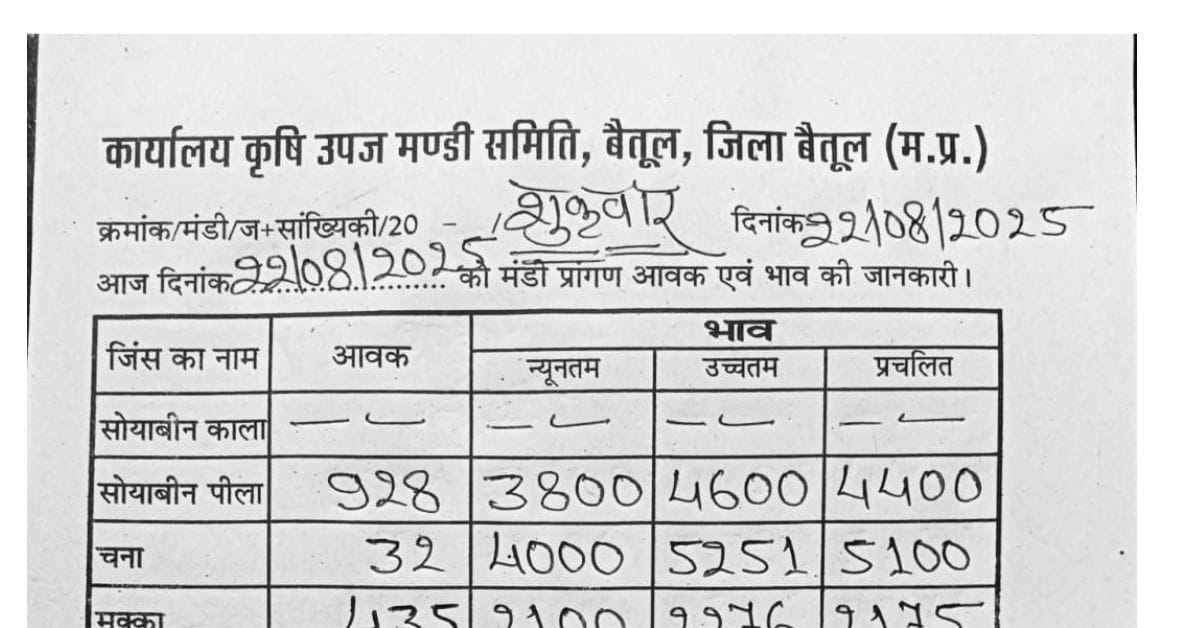 कार्यालय कृषि उपज मण्डी समिति, बैतूल, जिला बैतूल (म.प्र.)
क्रमांक/मंडी/ज+सांख्यिकी/20 - / शुक्रवार दिनांक 22/08/2025
आज दिनांक 22/08/2025 को मंडी प्रांगण आवक एवं भाव की जानकारी।
जिंस का नाम आवक भाव
न्यूनतम उच्चतम प्रचलित
सोयाबीन काला — — — — — — — —
सोयाबीन पीला 928 3800 4600 4400
चना 32 4000 5251 5100
मक्का 435 2100 2276 2175